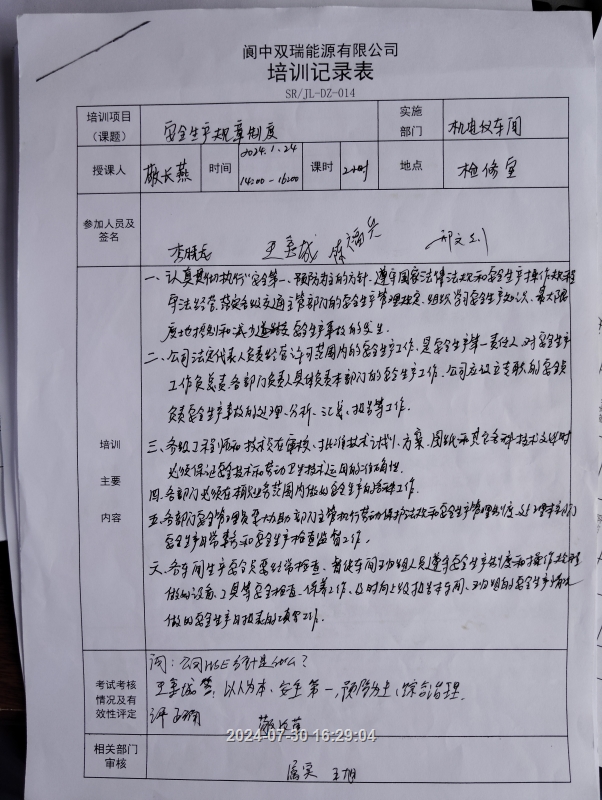 阆中双瑞能源有限公司
培训记录表
SR/JL-DZ-014
培训项目
(课题)
安全生产规章制度
实施
部门
机电仪车间
授课人
敬长燕
时间
2024.1.24
14:00-16:00
课时
2小时
地点
检修室
参加人员及
签名
一、认真贯彻执行"安全第一、预防为主的方针,遵守国家法律法规和安全生产操作规程
守法经营,落实各级交通主管部门的安全生产管理规定,组织学习安全生产知识,最大限
度地控制和减少 安全生产事故的发生.
二、公司法定代表人负责经营许可范围内的安全生产工作,是安全生产第一责任人,对安全生产
工作负总责.各部门负责人具体负责本部门的安全生产工作.公司应设立专职的安全员
负责安全生产事故的处理、分析、汇总、报告等工作.
培训
主要
内容
三、各级工程师和技术员在审核、批准技术计划、方案、图纸和其它各种技术文件时
必须保证安全技术和劳动卫生技术运用的准确性.
四、各部门必须在本职业务范围内做好安全生产的 工作.
五、各部门安全管理员要协助部门主管执行劳动保护法规和安全生产管理制度,处理本部门
安全生产日常事务和安全生产检查监督工作.
六、各车间生产安全员要经常检查、督促车间 班组人员遵守安全生产制度和操作规程
做好设备、工具等安全检查、保养工作.及时向上级报告本车间、班组的安全生产情况
做好安全生产 的 工作.
考试考核
情况及有
效性评定
问:公司HSE方针是什么?
答:以人为本、安全第一,预防为主、综合治理.
敬长燕
相关部门
审核
2024-07-30 16:29:04